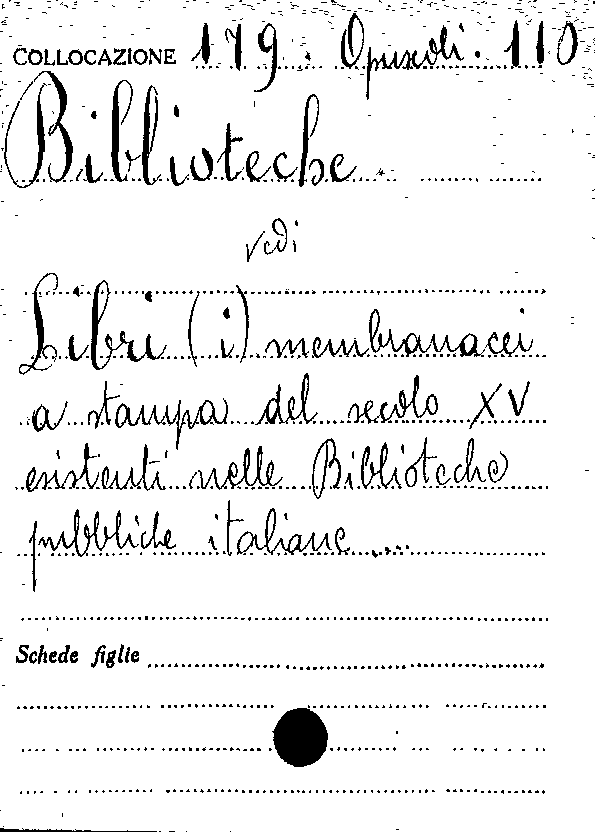 COLLOCAZIONE 179. Opuscoli. 110
Biblioteche.
vedi
Libri (i) membranacei
a stampa del secolo XV
esistenti nelle Biblioteche
pubbliche italiane....
Schede figlie